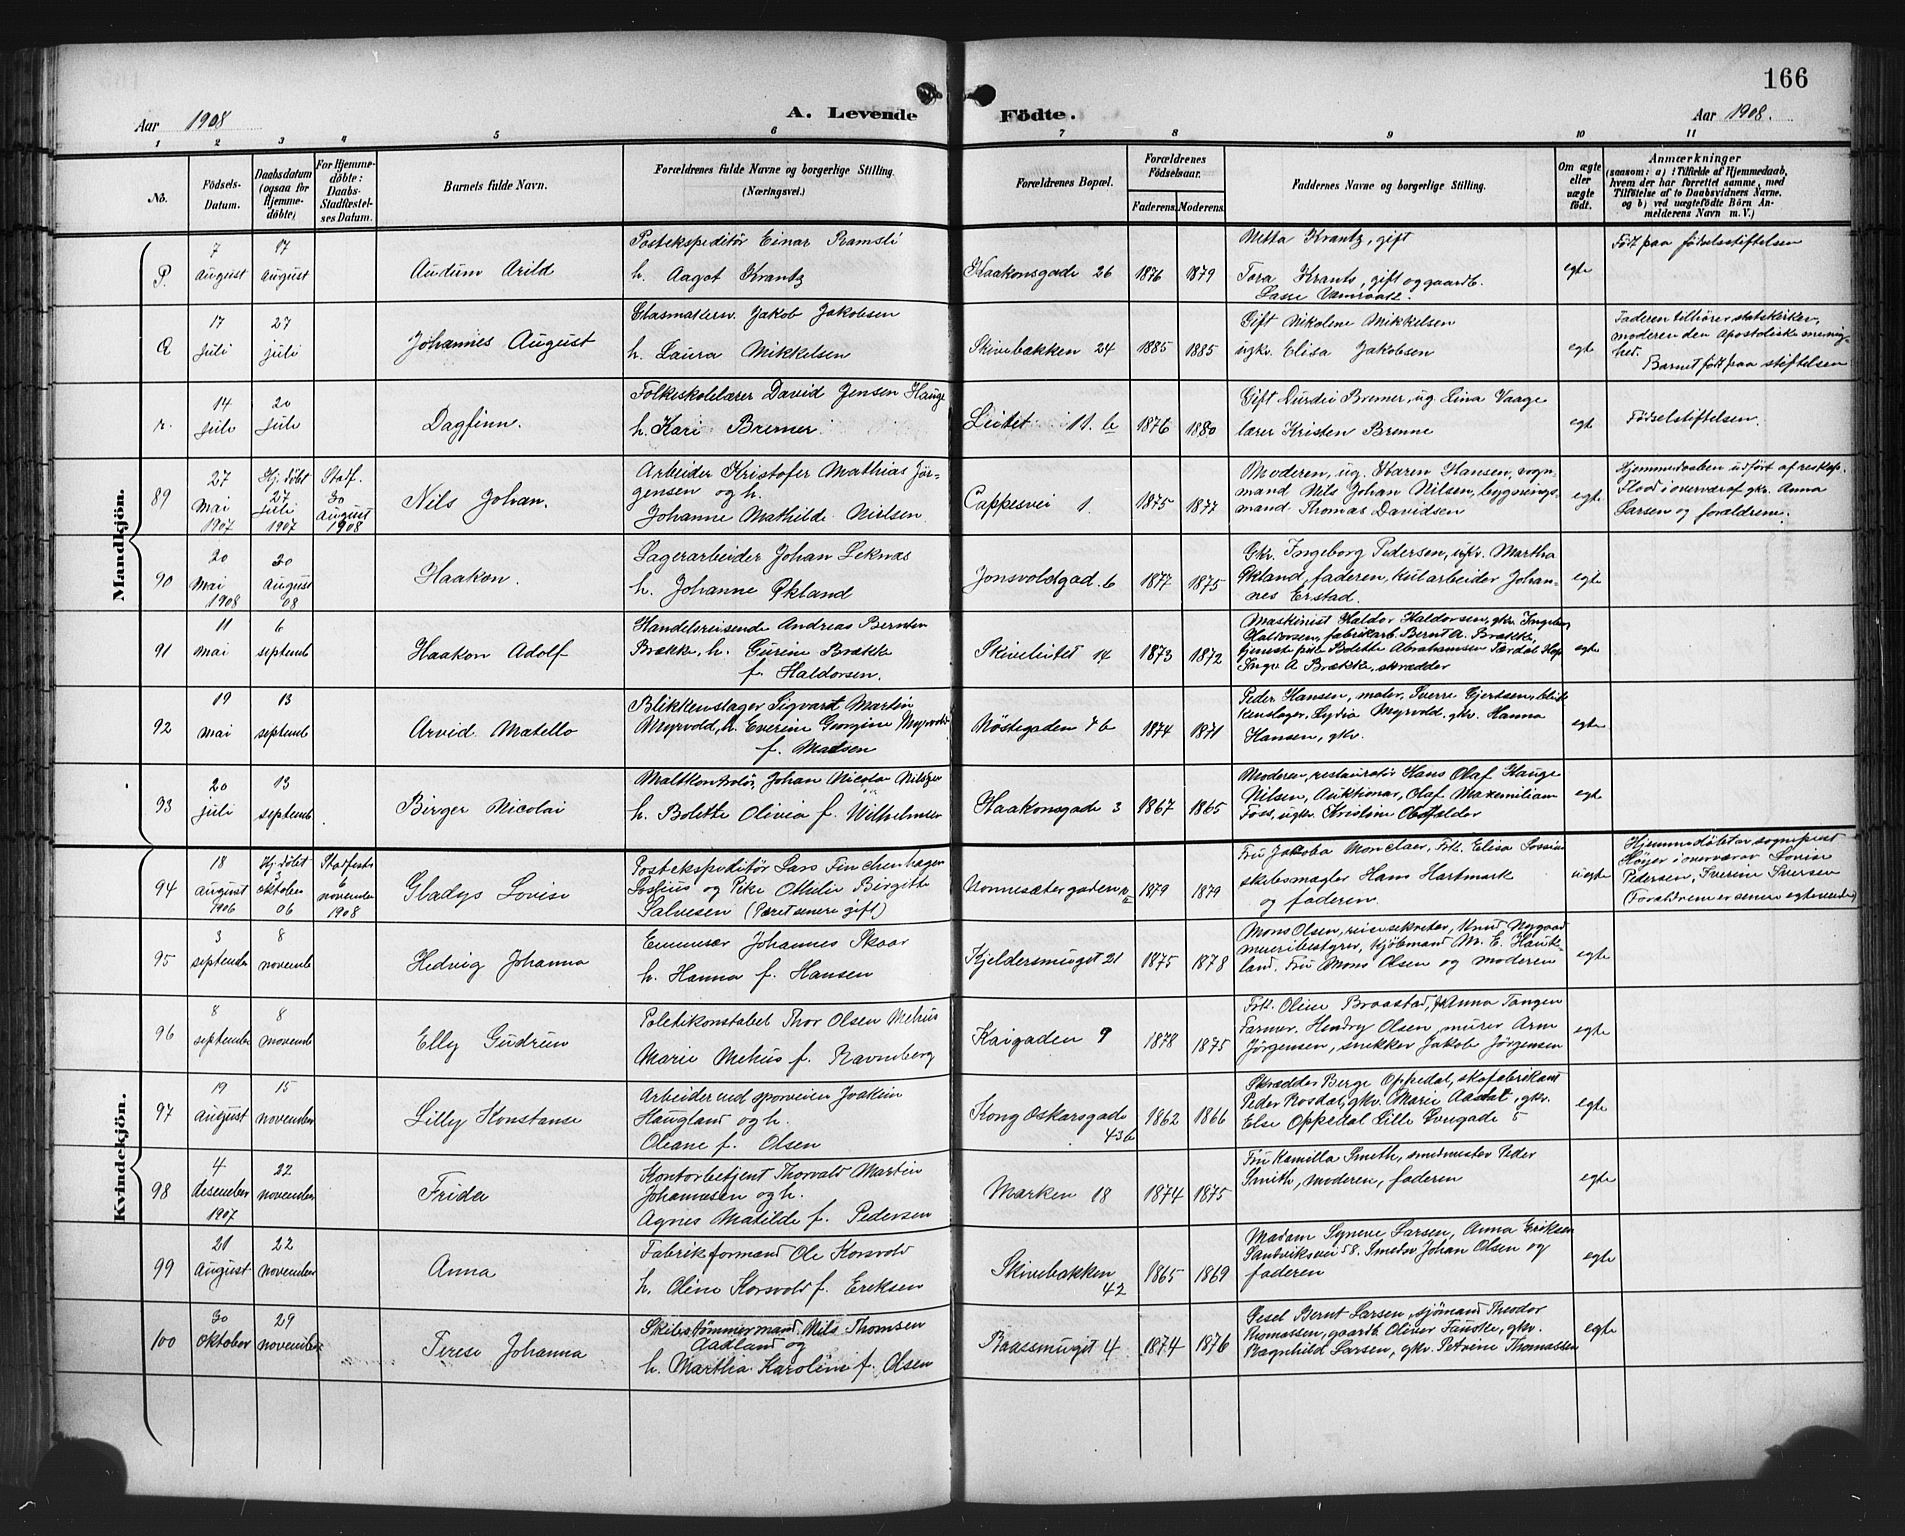 166
Aar 1908
A. Levende Födte.
Aar 1908.
1 2 3 4 5 6 7 8 9 10 11
No.
Födsels-
Datum.
Daabsdatum
(ogsaa for
Hjemme-
döbte)
For Hjemme-
döbte:
Daabs-
Stadfæstel-
ses Datum.
Barnets fulde Navn.
Forældrenes fulde Navne og borgerlige Stilling.
(Næringsvei.)
Forældrenes Bopæl.
Forældrenes
Födselsaar.
Faderens. Moderens.
Faddernes Navne og borgerlige Stilling.
Om ægte
eller
uægte
födt.
Anmærkninger
(saasom: a) i Tilfælde af Hjemmedaab,
hvem der har forrettet samme, med
Tilföielse af to Daabsvidners Navne.
og b) ved uægtefödte Börn An-
melderens Navn m. V.)
Mandkjön.
P.
7
august
17
august
Audum Arild
Postekspeditör Einar Ramsli
h. Aagot Krantz
Haakonsgade 26
1876 1879
Metta Krantz, gift
Tora Krants, gift og gaardb.
Lasse
egte
Födt paa födselsstiftelsen
Q
17
juli
27
juli
Johannes August
Glasmesterv. Jakob Jakobsen
h. Laura Mikkelsen
Skivebakken 24
1885 1885
Gift Nikolene Mikkelsen
ugkv. Elisa Jakobsen
egte
Faderen tilhörer statskirken,
moderen den apostoliske menig-
hed.
Barnet födt paa stiftelsen
r.
14
juli
20
juli
Dagfinn.
Folkeskolelærer David Jensen Hauge
h. Kari Bremer
Leitet 11. b
1876 1880
Gift Durdei Bremer, ug. Lina Vaage
lærer Kristen Brenne
egte
Födselstiftelsen.
89
27
Mai
1907
Hj. döbt
27
juli
1907
Stadf.
30
august
1908
Nils Johan.
Arbeider Kristofer Mathias Jör-
gensen og h.
Johanne Mathilde Nielsen
Cappesvei 1.
1875 1877
Moderen, ug. Karen Hansen, vogn-
mand Nils Johan Nilsen, bygnings-
mand Thomas Davidsen
egte
Hjemmedaaben udfört af reskap.
Flod i overvær af gkv. Anna
Larsen og forældrene.
90
20
Mai
1908
30
August
08
Haakon.
Lagerarbeider Johan Leknas
h. Johanne Økland
Jonsvoldgad. 6
1877 1875
Gkv. Ingeborg Pedersen, ugkv. Martha
Økland, faderen, kularbeider Johan-
nes Erstad.
egte
91
11
mai
6
septemb
Haakon Adolf
Handelsreisende Andreas Berntin
Brække, h. Gurine Brække
f. Haldorsen.
Skiveleitet 14
1873 1872
Maskinist Haldor Haldorsen, gkv. Ingeborg
Haldorsen, fabrikarb. Bernt A. Brække,
tjeneste pike Bolette Abrahamsen
Inge A Brække, skrædder
egte
92
19
mai
13
septemb
Arvid Matello
Blikkenslager Sigvart Martin
Myrvold, h. Everine Gurgine Myrvold
f. Madsen
Nöstegaden 76
1874 1871
Peder Hansen, maler, Sverre Gjertsen, blik-
kenslager, Lydia Myrvold. gkv. Hanna
Hansen, gkv.
egte
93
20
juli
13
septemb
Birger Nicolai
Maltkontrolör, Johan Nicolai Nilsen
h. Bolette Olivia f. Wilhelmsen
Haakonsgade 3
1867 1865
Moderen, restauratör Hans Olaf Hauge
Nilsen, Auktionar, Olaf Maxemiliam
Foss, ugkv. Kristine Obstfelder
egte
Kvindekjön.
94
18
august
1906
Hj. döbt
3
oktober
06
Stadfest.
6
november
1908
Gladys Lovise
Postekspeditör Lars Finchenhagen
Losjius og Pike Ottelie Bergitte
Salvesen (Paret senere gift)
Nonnesætergaden
1879 1879
Fru Jakoba Monclaer, Frk. Elisa
skibsmægler Hans Hartmark
og faderen.
uegte
Hjemmedöbt av sogneprest
Höyer i overvær av Lovise
Pedersen, Sverine Iversen
(Forældrene er senere egteviede)
95
3
september
8
novemb
Hedvig Johanna
Emmissær Johannes Skaar
h. Hanna f. Hansen
Kjeldersmuget 21
1875 1878
Mons Olsen, reisesekretær, Knud Nygaard
meieribestyrer, Kjöbmand M. E. Hauke-
land. Fru Mons Olsen og moderen
egte
96
8
september
8
novemb
Elly Gudrun
Politikonstabel Thor Olsen Mehus
Marie Mehus f. Ravneberg
Kaigaden 9
1878 1875
Frk. Oleise Braastad, Anna Tangen
Farmer. Hendry Olsen, murer Arne
Jörgensen, snikker Jakob Jörgensen
egte
97
19
august
15
november
Lilly Konstanse
Arbeider ved sporveien Joakim
Haugland og h.
Oleane f. Olsen
Kong Oskarsgade
43b
1862 1866
Skrædder Berge Oppedal, skofabrikant
Peder Rosdal, gkv. Marie Aadal, gkv.
Else Oppedal Lille 5
egte
98
4
desember
1907
22
november
Frida
Kontorbetjent Thorvald Martin
Johannesen og h.
Agnes Matilde f. Pedersen
Marken 18
1874 1875
Fru Kamilla Smith, smedmester Peder
Smith, moderen, faderen
egte
99
21
August
22
november
Anna
Fabrikformand Ole Korsvold
h. Oline Korsvold f. Eriksen
Skivebakken
42
1865 1869
Madam Synene Larsen, Anna Eriksen
Sandviksvei 58. Smeder Johan Olsen og
faderen
egte
100
30
Oktober
29
november
Terese Johanna
Skibstömmermand Nils Thomsen
Aadland og
h. Martha Karoline f. Olsen
Baassmuget 4
1874 1876
Gesel Bernt Larsen, sjömand Theodor
Thomassen, gaardb. Oliver Fauske, gkv.
Ragnhild Larsen, gkv. Petrine Thomassen
egte